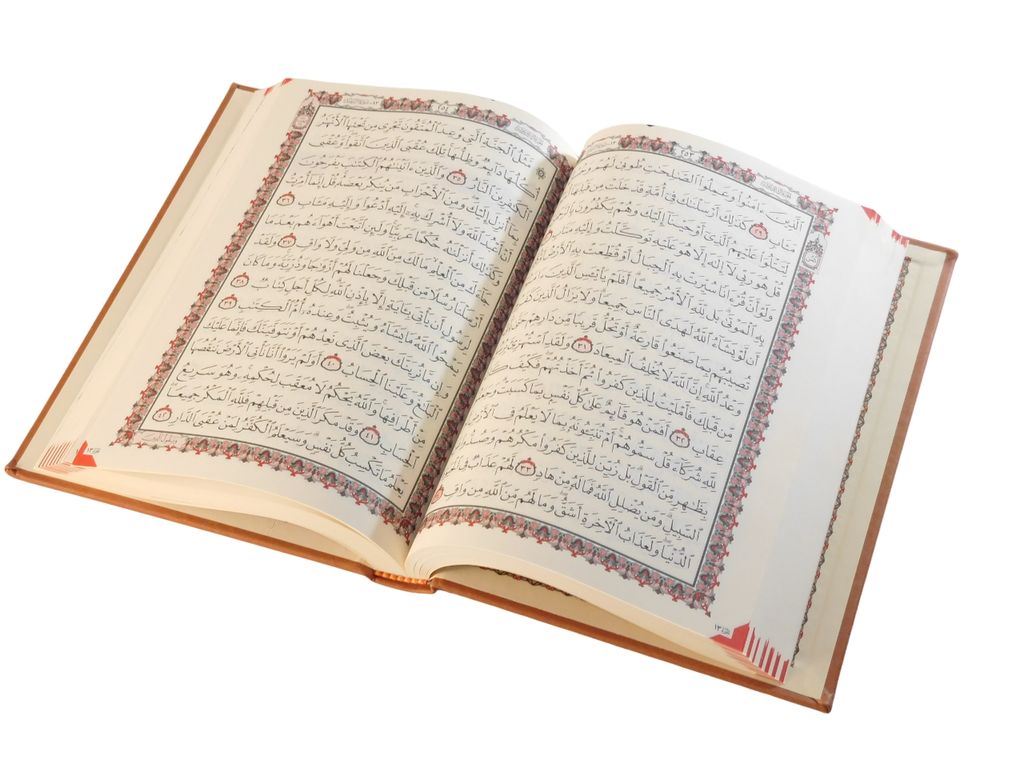 ٢٥٣
ٱلَّذِينَ ءَامَنُوا۟ وَعَمِلُوا۟ ٱلصَّٰلِحَٰتِ طُوبَىٰ لَهُمْ
مَـَٔابٍ ٢٩ كَذَٰلِكَ أَرْسَلْنَٰكَ فِىٓ أُمَّةٍ قَدْ خَلَتْ مِن قَبْلِهَآ
لِّتَتْلُوَا۟ عَلَيْهِمُ ٱلَّذِىٓ أَوْحَيْنَآ إِلَيْكَ وَهُمْ يَكْفُرُونَ
قُلْ هُوَ رَبِّى لَآ إِلَٰهَ إِلَّا هُوَ عَلَيْهِ تَوَكَّلْتُ وَإِلَيْهِ مَتَابِ
وَلَوْ أَنَّ قُرْءَانًا سُيِّرَتْ بِهِ ٱلْجِبَالُ أَوْ قُطِّعَتْ بِهِ ٱلْأَرْضُ
بِهِ ٱلْمَوْتَىٰ بَل لِّلَّهِ ٱلْأَمْرُ جَمِيعًا أَفَلَمْ يَا۟يْـَٔسِ ٱلَّذِينَ
أَن لَّوْ يَشَآءُ ٱللَّهُ لَهَدَى ٱلنَّاسَ جَمِيعًا وَلَا يَزَالُ ٱلَّذِينَ
تُصِيبُهُم بِمَا صَنَعُوا۟ قَارِعَةٌ أَوْ تَحُلُّ قَرِيبًا مِّن دَارِهِمْ
وَعْدُ ٱللَّهِ إِنَّ ٱللَّهَ لَا يُخْلِفُ ٱلْمِيعَادَ ٣١ وَلَقَدِ ٱسْتُهْزِئَ
مِّن قَبْلِكَ فَأَمْلَيْتُ لِلَّذِينَ كَفَرُوا۟ ثُمَّ أَخَذْتُهُمْ فَكَيْفَ
عِقَابِ ٣٢ أَفَمَنْ هُوَ قَآئِمٌ عَلَىٰ كُلِّ نَفْسٍۭ بِمَا كَسَبَتْ
لِلَّهِ شُرَكَآءَ قُلْ سَمُّوهُمْ أَمْ تُنَبِّـُٔونَهُۥ بِمَا لَا يَعْلَمُ فِى ٱلْأَرْضِ
بِظَٰهِرٍ مِّنَ ٱلْقَوْلِ بَلْ زُيِّنَ لِلَّذِينَ كَفَرُوا۟ مَكْرُهُمْ وَصُدُّوا۟
ٱلسَّبِيلِ وَمَن يُضْلِلِ ٱللَّهُ فَمَا لَهُۥ مِنْ هَادٍ ٣٣ لَّهُمْ عَذَابٌ
ٱلدُّنْيَا وَلَعَذَابُ ٱلْءَاخِرَةِ أَشَقُّ وَمَا لَهُم مِّنَ ٱللَّهِ مِن وَاقٍ
٢٥٤
مَّثَلُ ٱلْجَنَّةِ ٱلَّتِى وُعِدَ ٱلْمُتَّقُونَ تَجْرِى مِن تَحْتِهَا ٱلْأَنْهَٰرُ
أُكُلُهَا دَآئِمٌ وَظِلُّهَا تِلْكَ عُقْبَى ٱلَّذِينَ ٱتَّقَوا۟ وَّعُقْبَى
ٱلْكَٰفِرِينَ ٱلنَّارُ ٣٥ وَٱلَّذِينَ ءَاتَيْنَٰهُمُ ٱلْكِتَٰبَ يَفْرَحُونَ
أُنزِلَ إِلَيْكَ وَمِنَ ٱلْأَحْزَابِ مَن يُنكِرُ بَعْضَهُۥ قُلْ إِنَّمَآ أُمِرْتُ
أَنْ أَعْبُدَ ٱللَّهَ وَلَآ أُشْرِكَ بِهِۦٓ إِلَيْهِ أَدْعُوا۟ وَإِلَيْهِ مَـَٔابِ ٣٦
وَكَذَٰلِكَ أَنزَلْنَٰهُ حُكْمًا عَرَبِيًّا وَلَئِنِ ٱتَّبَعْتَ أَهْوَآءَهُم بَعْدَ مَا
مِنَ ٱلْعِلْمِ مَا لَكَ مِنَ ٱللَّهِ مِن وَلِىٍّ وَلَا وَاقٍ ٣٧ وَلَقَدْ
أَرْسَلْنَا رُسُلًا مِّن قَبْلِكَ وَجَعَلْنَا لَهُمْ أَزْوَٰجًا وَذُرِّيَّةً وَمَا كَانَ
لِرَسُولٍ أَن يَأْتِىَ بِـَٔايَةٍ إِلَّا بِإِذْنِ ٱللَّهِ لِكُلِّ أَجَلٍ كِتَابٌ ٣٨
يَمْحُوا۟ ٱللَّهُ مَا يَشَآءُ وَيُثْبِتُ وَعِندَهُۥٓ أُمُّ ٱلْكِتَٰبِ ٣٩
وَإِن مَّا نُرِيَنَّكَ بَعْضَ ٱلَّذِى نَعِدُهُمْ أَوْ نَتَوَفَّيَنَّكَ فَإِنَّمَا عَلَيْكَ
ٱلْبَلَٰغُ وَعَلَيْنَا ٱلْحِسَابُ ٤٠ أَوَلَمْ يَرَوْا۟ أَنَّا نَأْتِى ٱلْأَرْضَ نَنقُصُهَا
مِنْ أَطْرَافِهَا وَٱللَّهُ يَحْكُمُ لَا مُعَقِّبَ لِحُكْمِهِۦ وَهُوَ سَرِيعُ
ٱلْحِسَابِ ٤١ وَقَدْ مَكَرَ ٱلَّذِينَ مِن قَبْلِهِمْ فَلِلَّهِ ٱلْمَكْرُ جَمِيعًا
يَعْلَمُ مَا تَكْسِبُ كُلُّ نَفْسٍ وَسَيَعْلَمُ ٱلْكُفَّٰرُ لِمَنْ عُقْبَى ٱلدَّارِ ٤٢